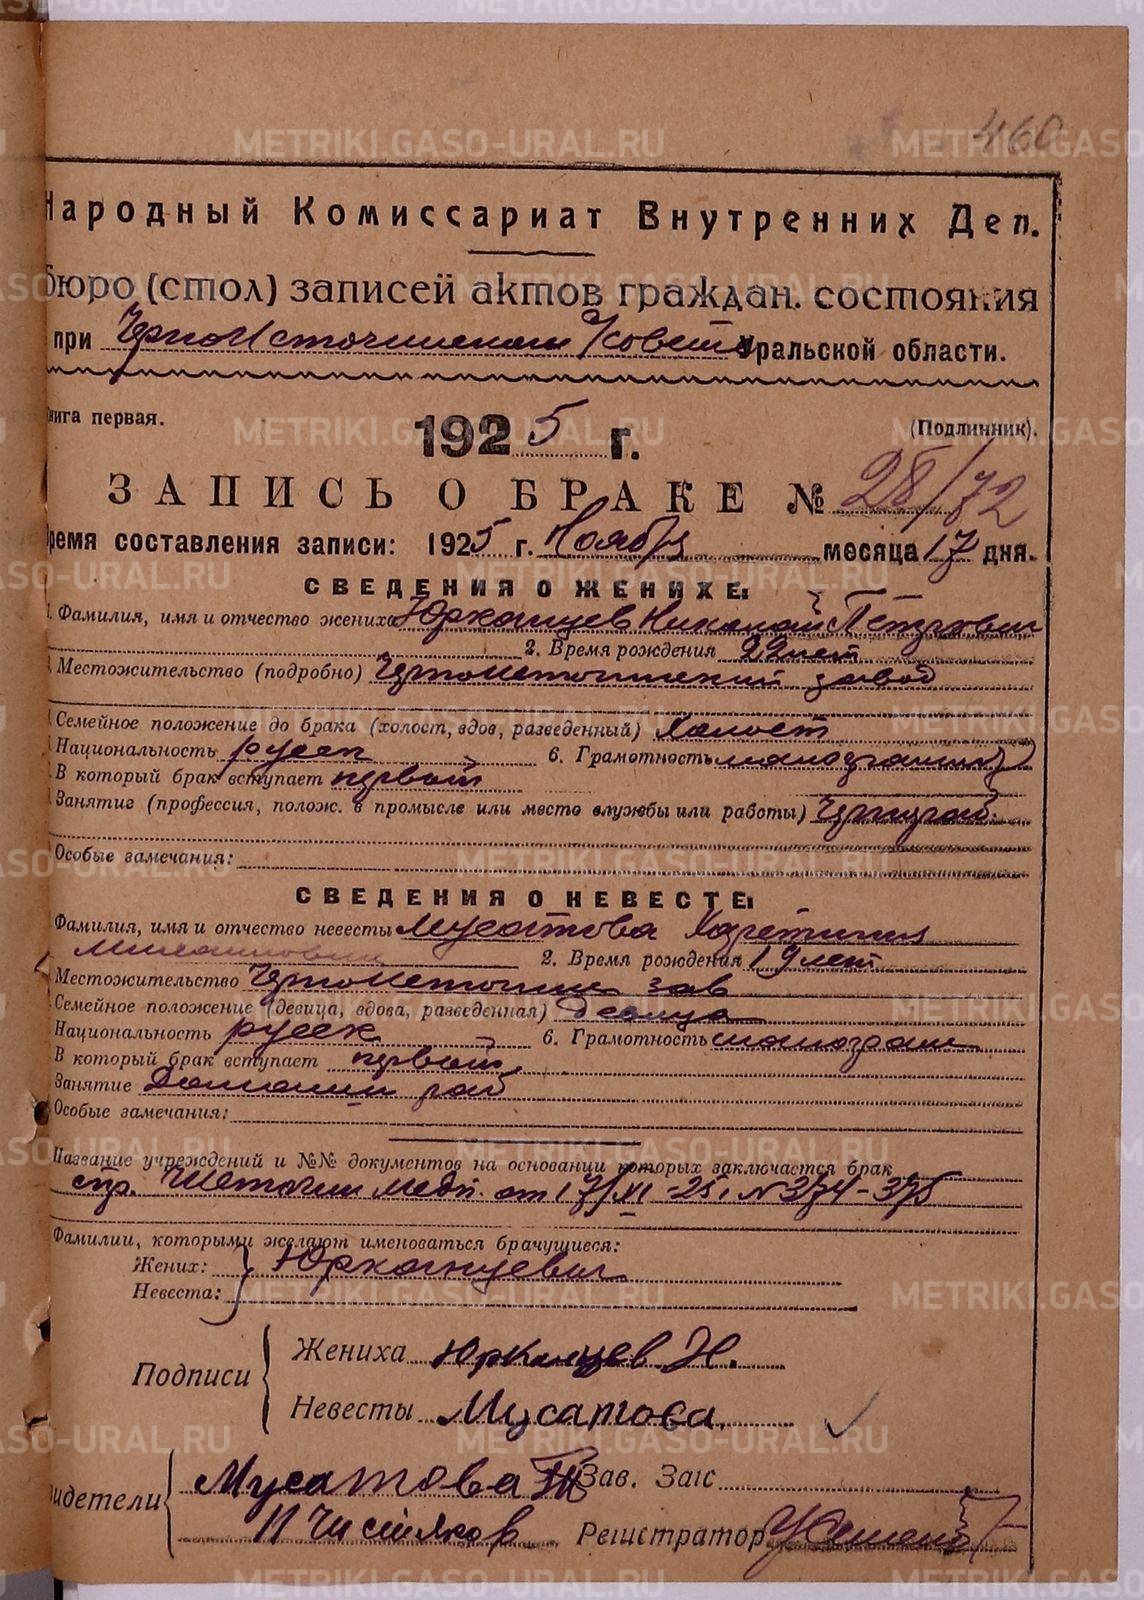 460
Народный Комиссариат Внутренних Дел.
бюро (стол) записей актов граждан. состояния
при Черноисточинском Совете Уральской области.
книга первая. (Подлинник).
1925 г.
ЗАПИСЬ О БРАКЕ № 28/72
Время составления записи: 1925 г. Ноября месяца 17 дня.
СВЕДЕНИЯ О ЖЕНИХЕ:
1. Фамилия, имя и отчество жениха Юрканцев Николай Петрович
2. Время рождения 22 лет
Местожительство (подробно) Черноисточинский завод
Семейное положение до брака (холост, вдов, разведенный) Халост
Национальность русск 6. Грамотность малограмотн
В который брак вступает первый
Занятие (профессия, полож. в промысле или место службы или работы) Чернораб.
Особые замечания:
СВЕДЕНИЯ О НЕВЕСТЕ:
Фамилия, имя и отчество невесты Мусатова Харетиния
2. Время рождения 19 лет
Местожительство Черноисточинс зав
Семейное положение (девица, вдова, разведенная) Девица
Национальность русск 6. Грамотность малограм
В который брак вступает первый
Занятие Домашн раб
Особые замечания:
Название учреждений и №№ документов на основании которых заключается брак
спр. Чисточин Медп. от 17/XI-25, N 374-375
Фамилии, которыми желают именоваться брачущиеся:
Жених: Юрканцевы
Невеста:
Подписи Жениха Юрканцев Н.
Невесты Мусатова.
Свидетели Мусатова Зав. Загс
П Чистяков Регистратор
METRIKI.GASO-URAL.RU